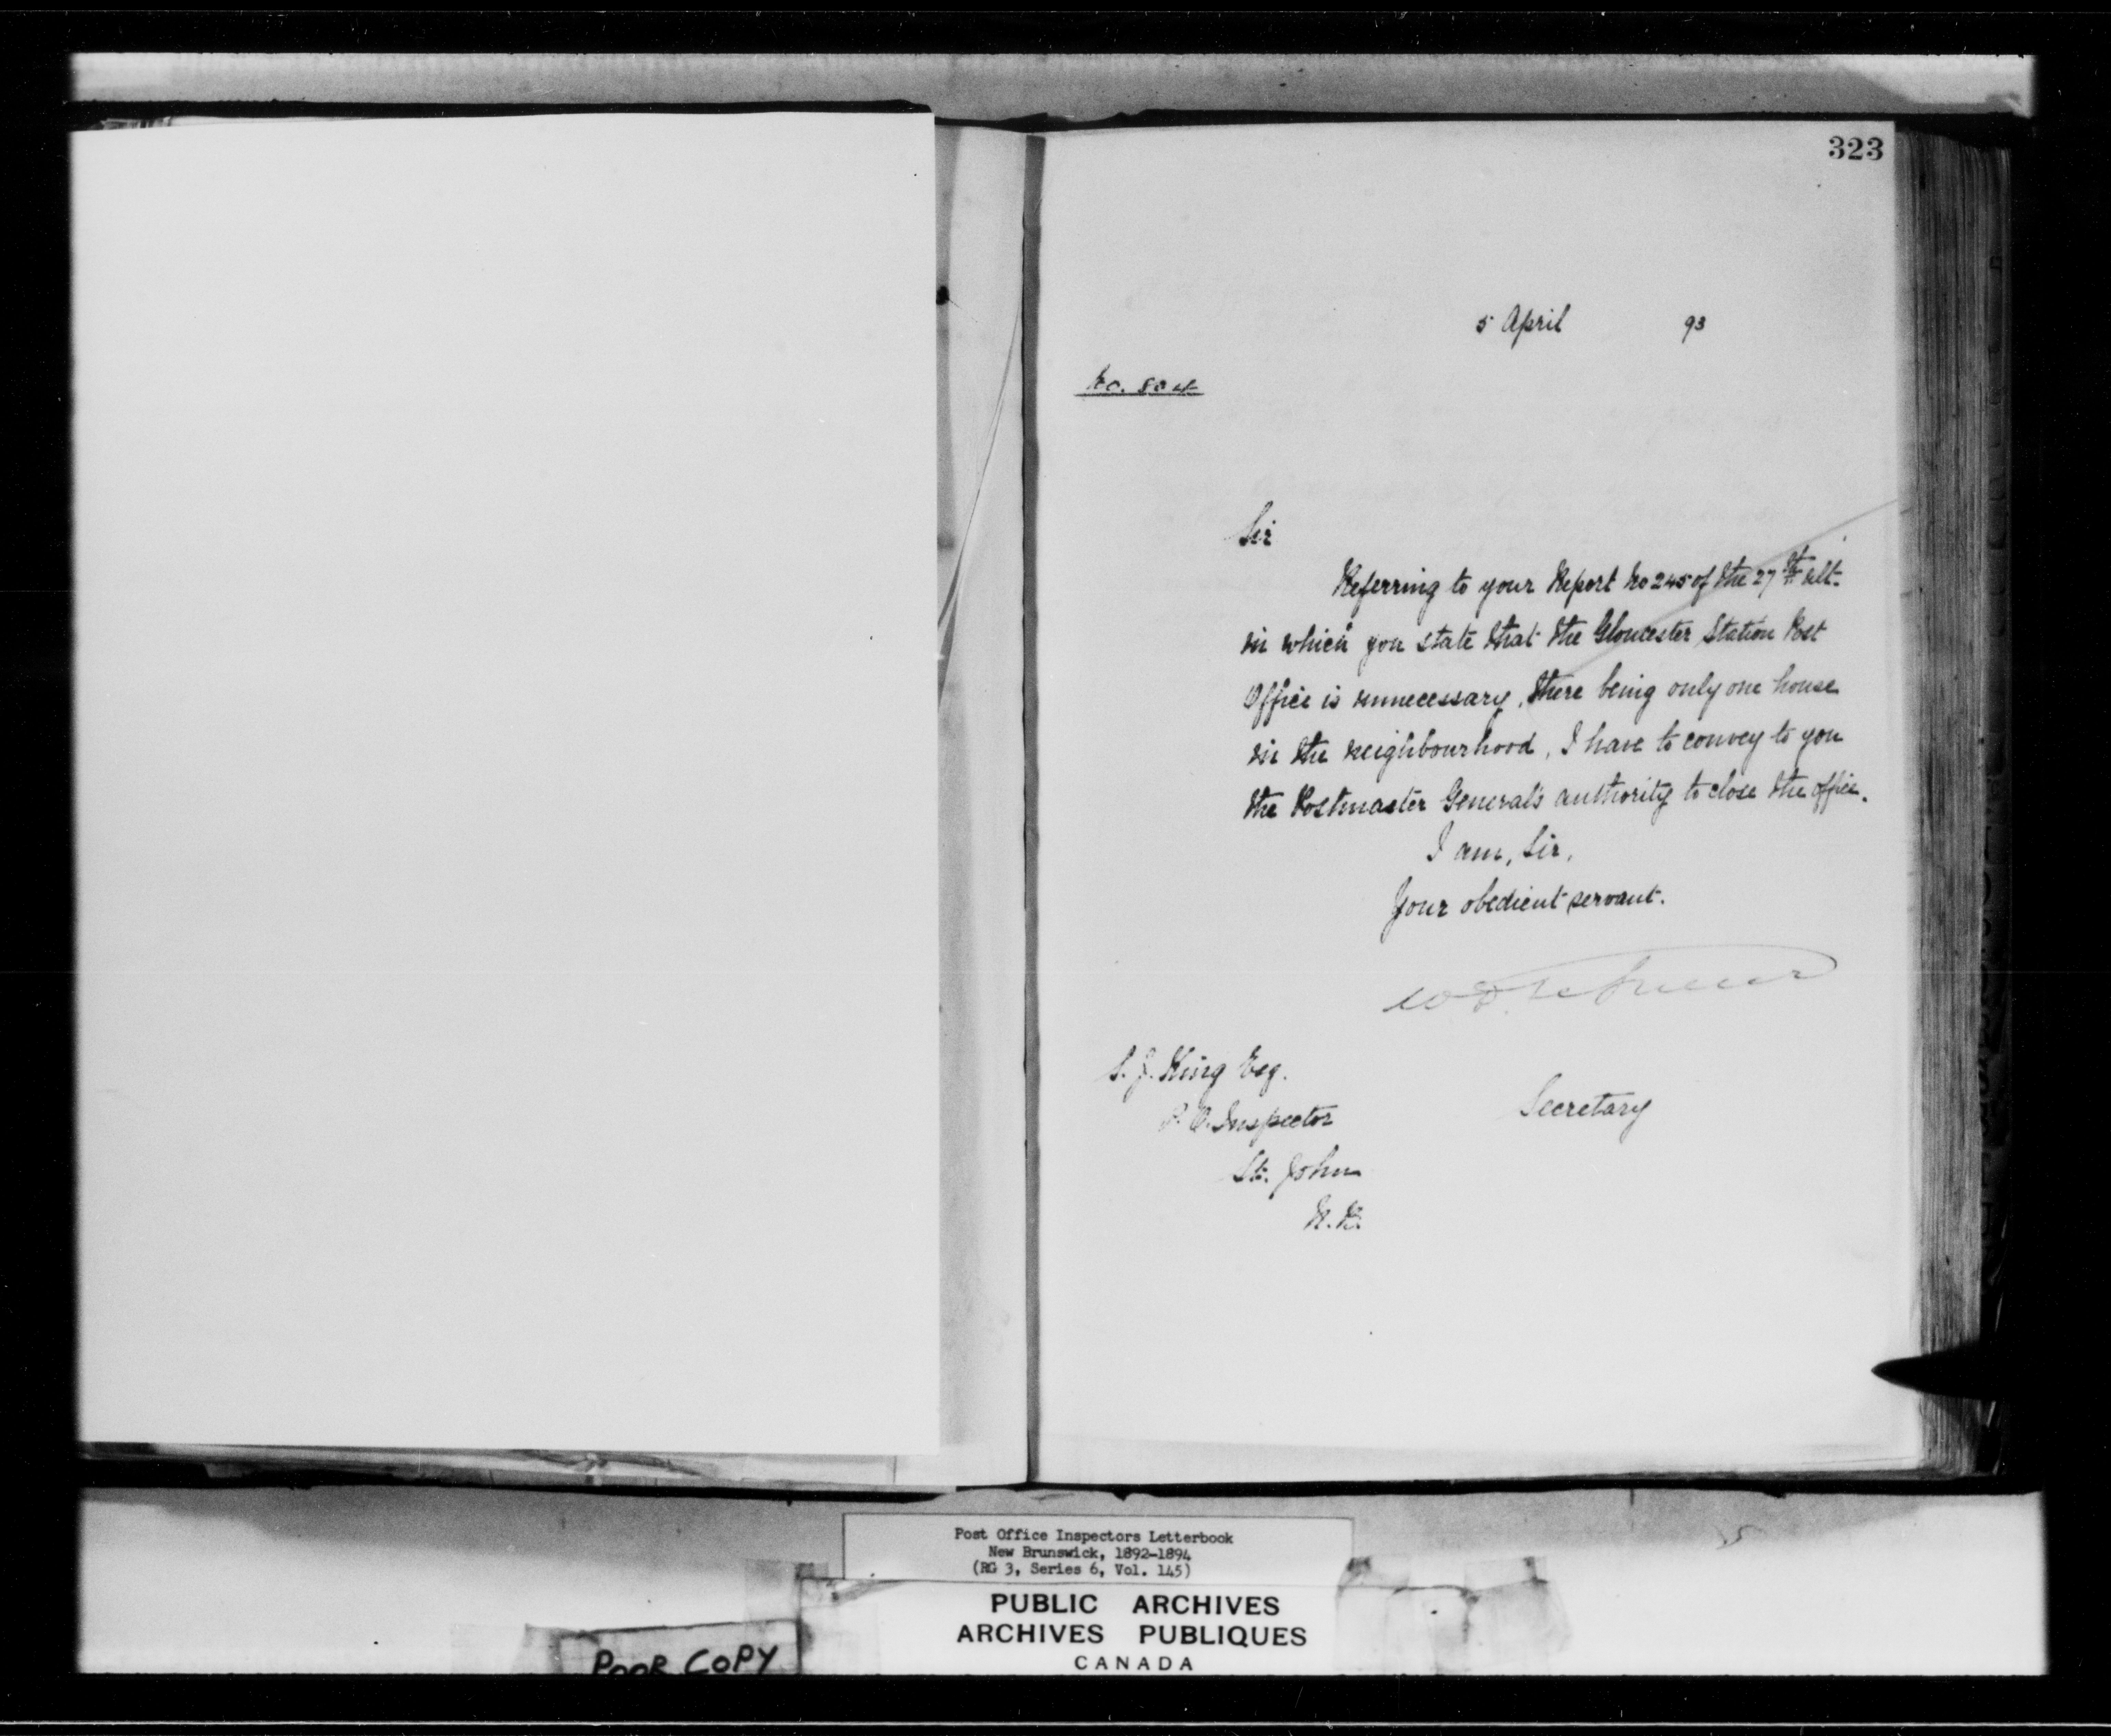 323
5 April 93
No. 804
Sir
Referring to your Report No 245 of the 27th ult.
in which you state that the Gloucester Station Post
Office is unnecessary, there being only one house
in the neighbourhood, I have to convey to you
the Postmaster General's authority to close the office.
I am, Sir,
Your obedient servant.
S. J. King Esq.
P. O. Inspector
St. John
N. B.
Secretary
Post Office Inspectors Letterbook
New Brunswick, 1892-1894
(RG 3, Series 6, Vol. 145)
PUBLIC ARCHIVES
ARCHIVES PUBLIQUES
CANADA
POOR COPY